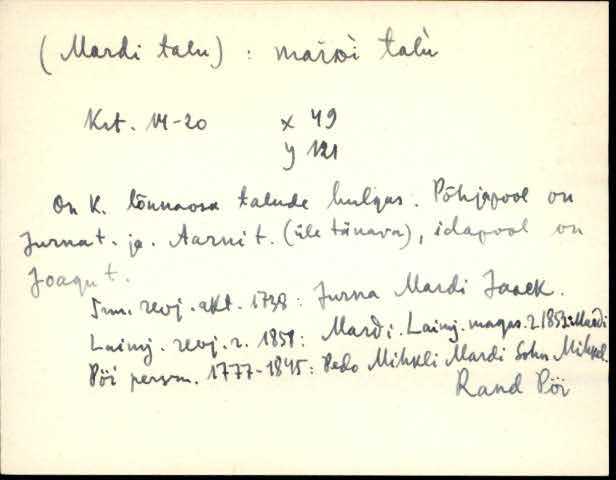 (Mardi talu) : marᴅì talù
Krt. VI-20 x 49
y 121
On K. lõunaosa talude hulgas. Põhjapool on
Jurna t. ja Aarni t. (üle tänava), idapool on
Joagu t.
revj. akt. 1738: Jurna Mardi Jaack.
Laimj. revj. r. 1858: Mardi. Laimj. magas. r. 1852: Mardi
Pöi persm. 1777-1845: Pedo Mihkli Mardi Sohn Mihkel.
Rand Pöi